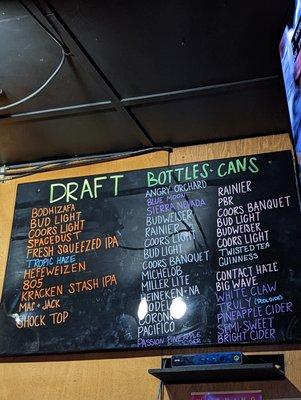 DRAFT
BODHIZAFA
BUD LIGHT
COORS LIGHT
SPACEDUST
FRESH SQUEEZED IPA
TROPIC HAZE
HEFEWEIZEN
805
KRACKEN STASH IPA
MAC + JACK
SHOCK TOP
BOTTLES
ANGRY ORCHARD
BLUE MOON
SIERRA NEVADA
BUDWEISER
RAINIER
COORS LIGHT
BUD LIGHT
COORS BANQUET
MICHELOB
MILLER LITE
HEINEKEN • NA
MODELO
CORONA
PACIFICO
PASSION PINEAPPLE
CANS
RAINIER
PBR
COORS BANQUET
BUD LIGHT
BUDWEISER
COORS LIGHT
TWISTED TEA
GUINNESS
CONTACT HAZE
BIG WAVE
WHITE CLAW
TRULY
PINEAPPLE CIDER
SEMI-SWEET
BRIGHT CIDER